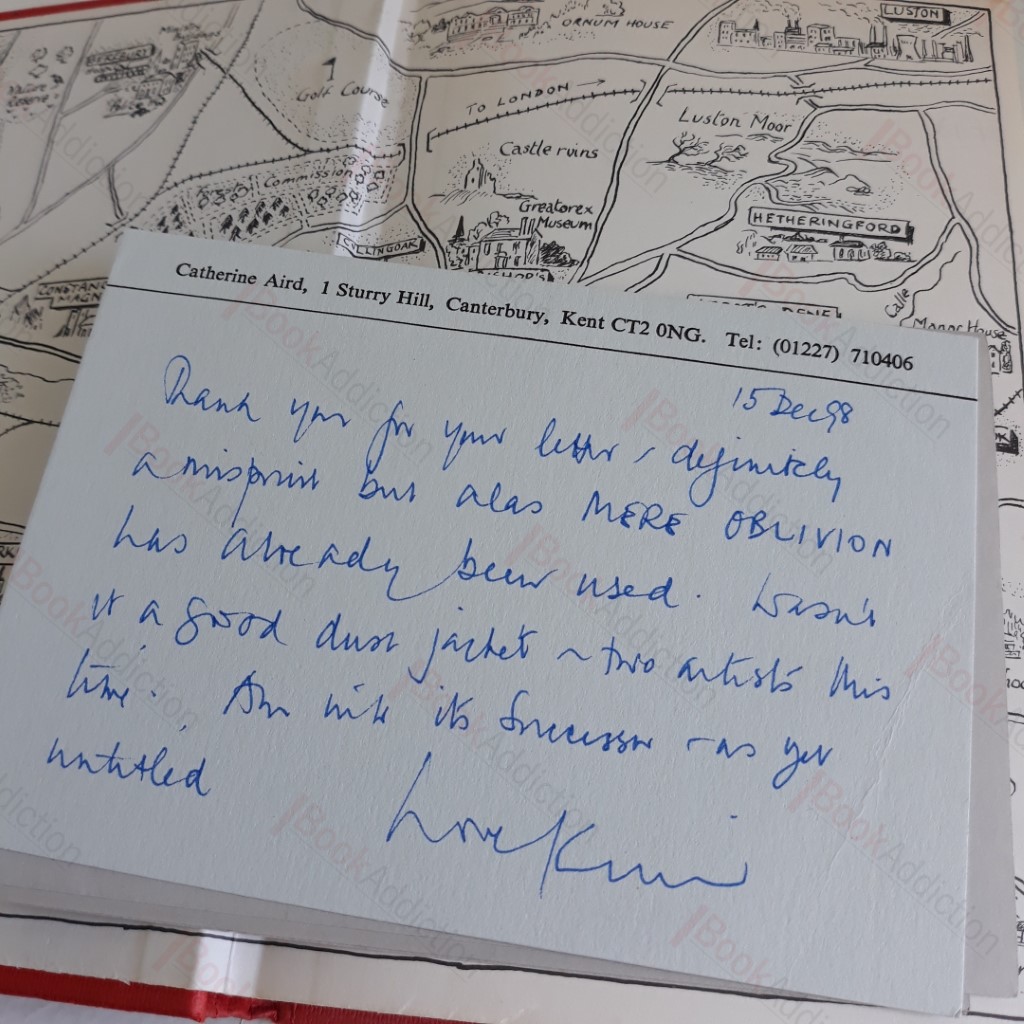 ORNUM HOUSE
LUSTON
Golf Course
TO LONDON
Luston Moor
Castle ruins
Commission
Greatorex
Museum
HETHERINGFORD
CULLINGOAK
Calle
Manor House
Catherine Aird, 1 Sturry Hill, Canterbury, Kent CT2 0NG. Tel: (01227) 710406
15 Dec 98
Thank you for your letter, definitely
a misprint but alas MERE OBLIVION
has already been used. Wasn't
it a good dust jacket ~ two artists this
time. Am into its successor - as yet
untitled
Love
BookAddiction